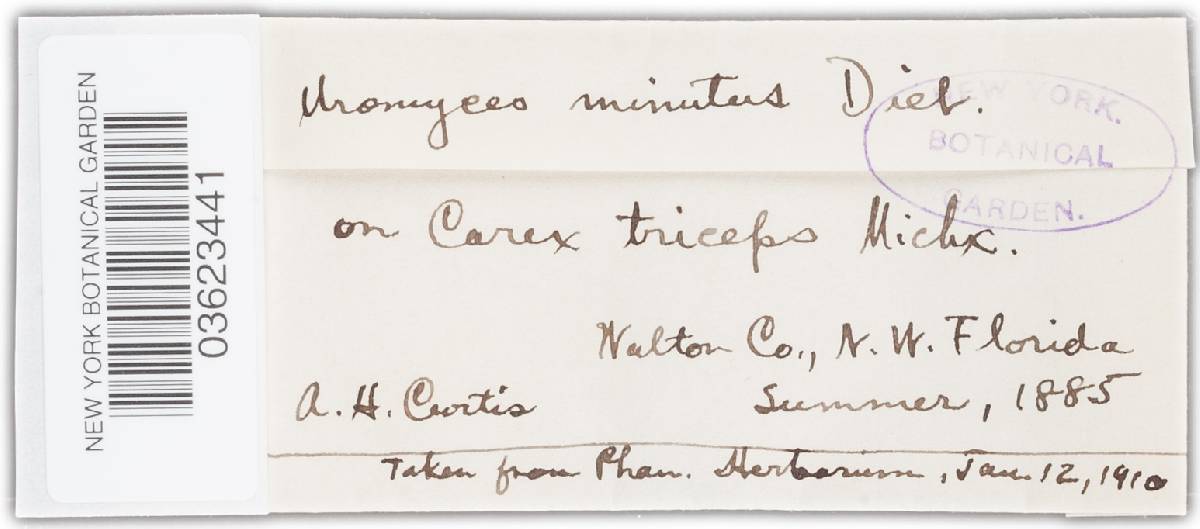 NEW YORK BOTANICAL GARDEN
03623441
Uromyces minutus Diet.
NEW YORK.
BOTANICAL
GARDEN.
on Carex triceps Michx.
Walton Co., N. W. Florida
A. H. Curtis Summer, 1885
Taken from Phan. Herbarium, Jan. 12, 1910